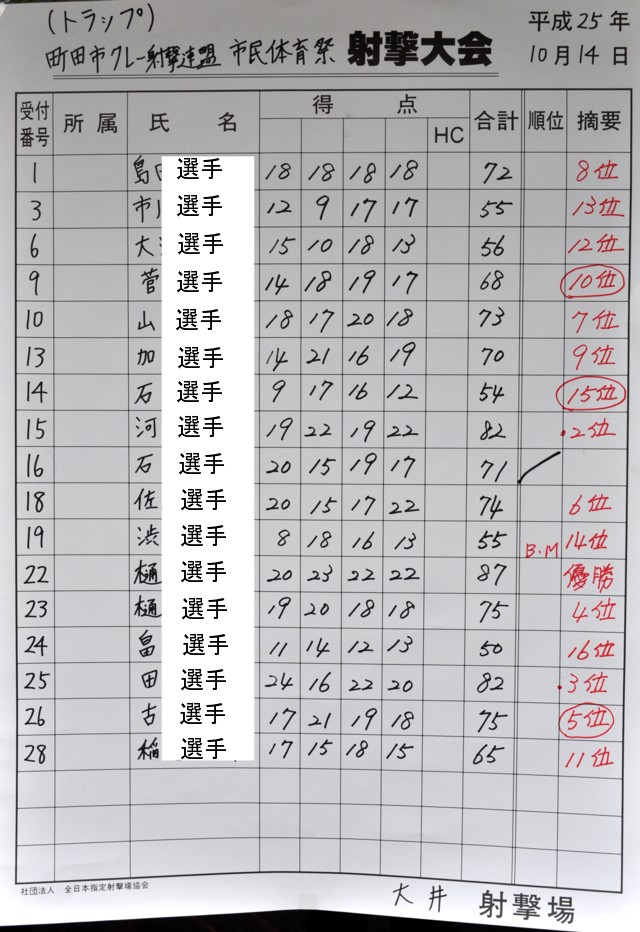 (トラップ)
平成25年
町田市クレー射撃連盟 市民体育祭 射撃大会
10月14日
受付番号 所属 氏名 得点 HC 合計 順位 摘要
1 島田 選手 18 18 18 18 72 8位
3 市川 選手 12 9 17 17 55 13位
6 大 選手 15 10 18 13 56 12位
9 菅 選手 14 18 19 17 68 10位
10 山 選手 18 17 20 18 73 7位
13 加 選手 14 21 16 19 70 9位
14 石 選手 9 17 16 12 54 15位
15 河 選手 19 22 19 22 82 2位
16 石 選手 20 15 19 17 71
18 佐 選手 20 15 17 22 74 6位
19 渋 選手 8 18 16 13 55 B.M 14位
22 樋 選手 20 23 22 22 87 優勝
23 樋 選手 19 20 18 18 75 4位
24 畠 選手 11 14 12 13 50 16位
25 田 選手 24 16 22 20 82 3位
26 古 選手 17 21 19 18 75 5位
28 稲 選手 17 15 18 15 65 11位
社団法人 全日本指定射撃場協会
大井 射撃場